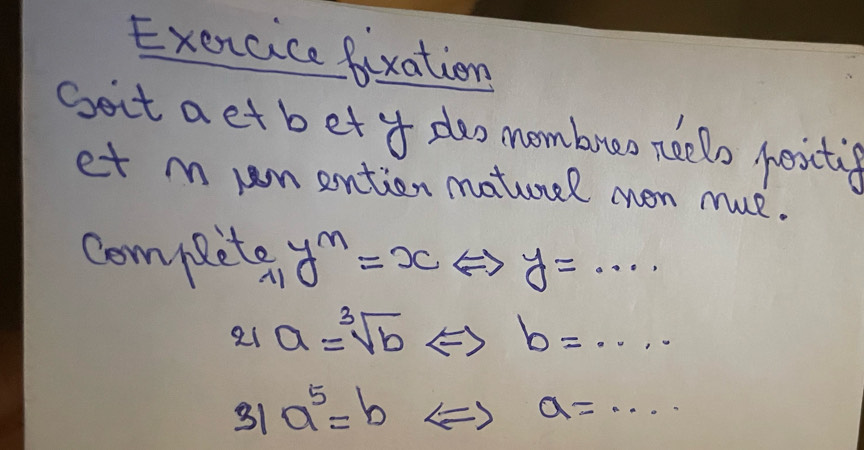 Exercice fixation
Soit a et b et y des nombres réels positif
et n un entier naturel non nul.
Complète 1) yⁿ = x ⟺ y = ....
2) a = ∛b ⟺ b = ....
3) a⁵ = b ⟺ a = ....